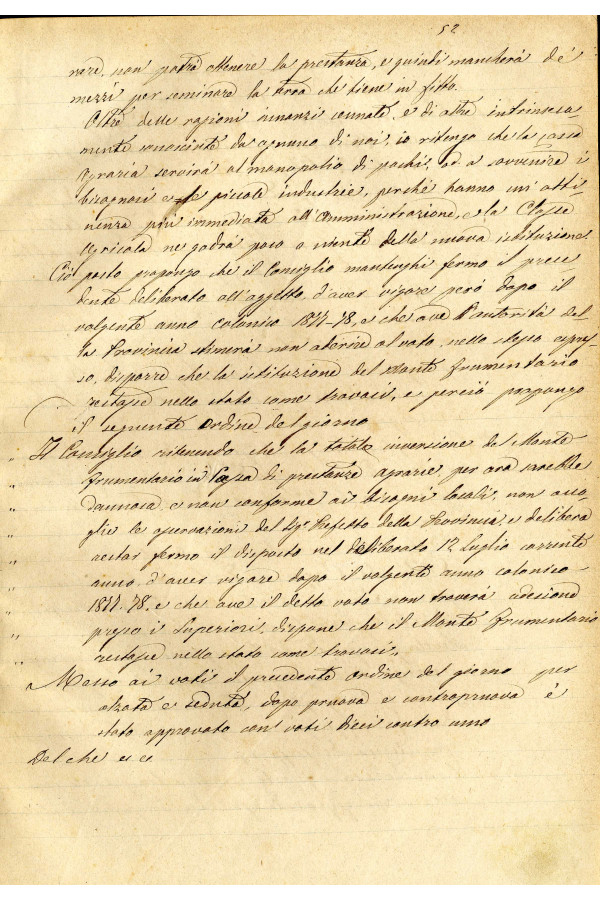 52
rare, non potrà ottenere la prestanza, e quindi mancherà de'
mezzi per seminare la terra che tiene in fitto.
Oltre delle ragioni innanzi cennate, e di altre intrinseca-
mente conosciute da ognuno di noi, io ritengo che la cassa
agraria servirà al monopolio di pochi, ad a sovvenire i
bisognosi e le piccole industrie, perchè hanno un' atti-
nenza più immediata all'Amministrazione, e la Classe
Agricola ne godrà poco o niente della nuova istituzione.
Ciò posto propongo che il Consiglio mantenghi fermo il prece-
dente deliberato all'oggetto, d'aver vigore però dopo il
volgente anno colonico 1877-78, e che ove l'autorità del-
la Provincia stimerà non aderire al voto nello stesso espres-
so, disporre che la istituzione del Monte frumentario
restasse nello stato come trovasi, e perciò propongo
il seguente ordine del giorno
" Il Consiglio ritenendo che la totale inversione da Monte
" frumentario in Cassa di prestanze agrarie per ora sarebbe
" dannosa e non conforme ai bisogni locali, non acco-
" glie le osservazioni del Sigr Prefetto della Provincia, e delibera
" restar fermo il disposto nel deliberato 12 Luglio corrente
" anno, d'aver vigore dopo il volgente anno colonico
" 1877-78, e che ove il detto voto non troverà adesione
" presso i Superiori, dispone che il Monte frumentario
" restasse nello stato come trovasi.
" Messo ai voti il precedente ordine del giorno per
alzata e seduta, dopo pruova e contropruova è
stato approvato con voti dieci contro uno
Del che ec ec